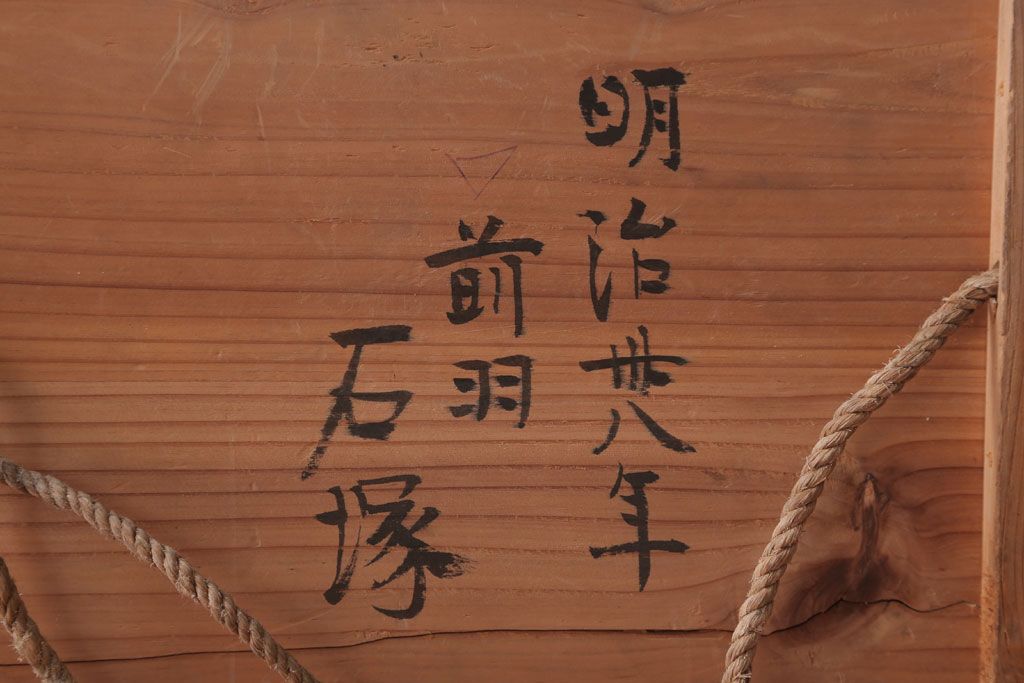 明治卅八年
前羽
石塚